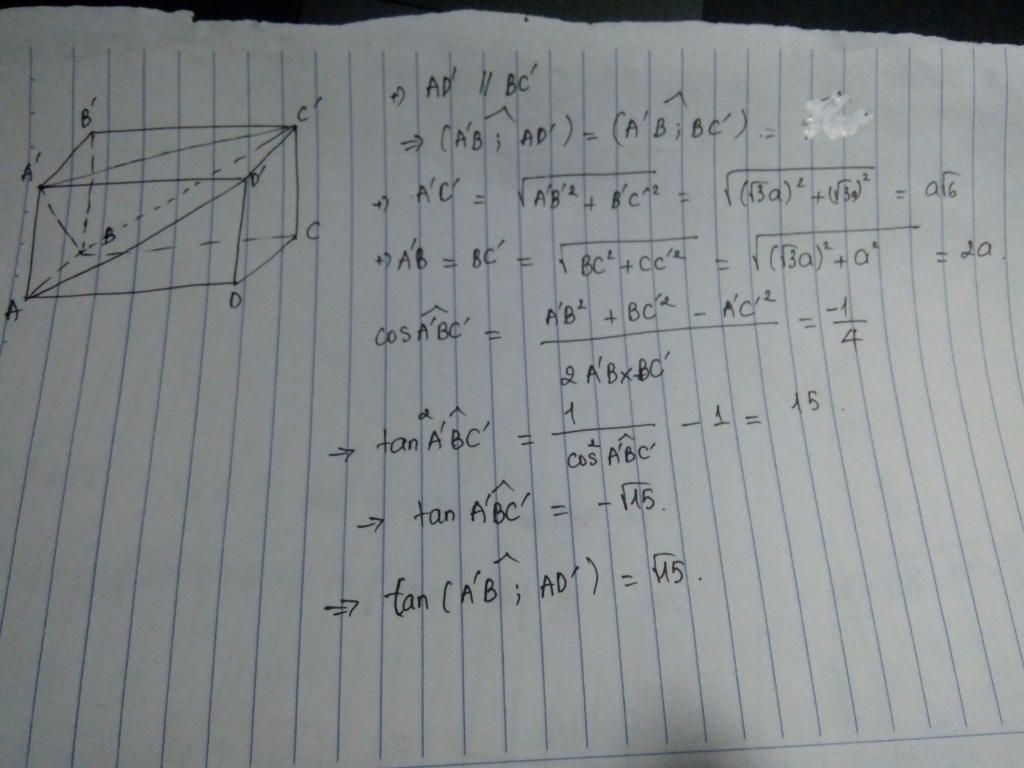 B' C'
A' D'
B C
A D
+) AD' // BC'
=> (A'B ; AD') = (A'B ; BC') =
+) A'C' = √(A'B'² + B'C'²) = √((√3a)² + (√3a)²) = a√6
+) A'B = BC' = √(BC² + CC'²) = √((√3a)² + a²) = 2a.
cos A'BC' = (A'B² + BC'² - A'C'²) / (2 A'B×BC') = -1/4
→ tan² A'BC' = 1 / (cos² A'BC') - 1 = 15.
→ tan A'BC' = -√15.
=> tan (A'B ; AD') = √15.